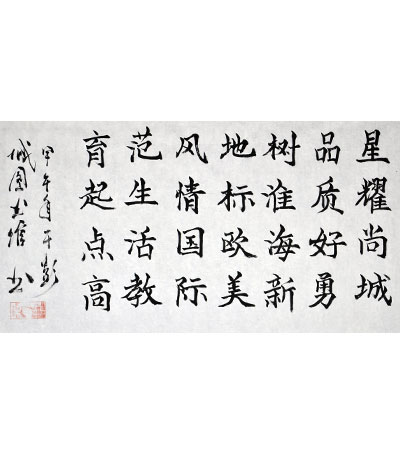 星耀尚城
品质好勇
树淮海新
地标欧美
风情国际
范生活教
育起点高
甲午年于彭
城书